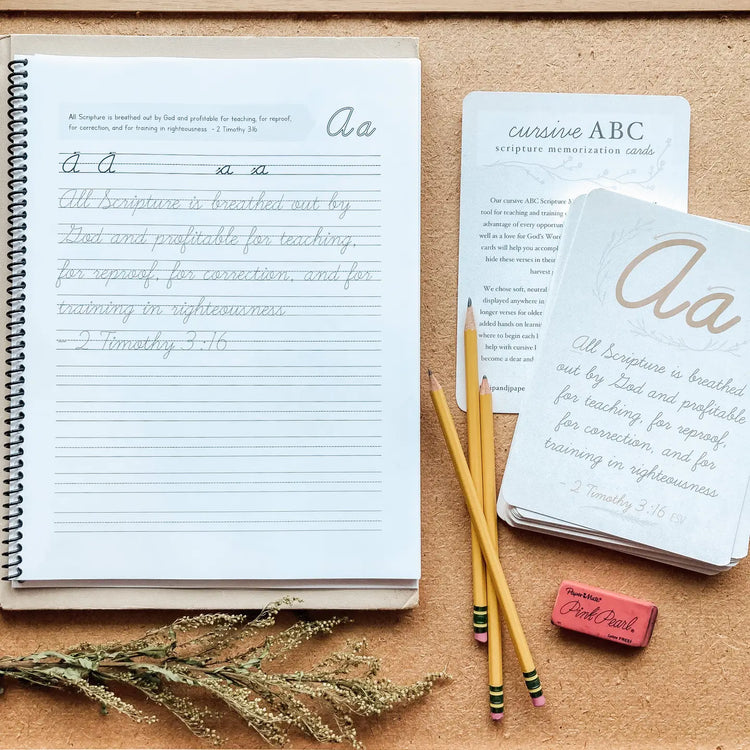 All Scripture is breathed out by God and profitable for teaching, for reproof,
for correction, and for training in righteousness - 2 Timothy 3:16
Aa
A A a a
All Scripture is breathed out by
God and profitable for teaching,
for reproof, for correction, and for
training in righteousness
- 2 Timothy 3:16
cursive ABC
scripture memorization cards
Our cursive ABC Scripture
tool for teaching and training
advantage of every opportunity
well as a love for God's Wor
cards will help you accompl
hide these verses in their
harvest
We chose soft, neutral
displayed anywhere in
longer verses for older
added hands on learn
where to begin each l
help with cursive l
become a dear and
pandjpape
Aa
All Scripture is breathed
out by God and profitable
for teaching, for reproof,
for correction, and for
training in righteousness
- 2 Timothy 3:16 ESV
Paper Mate
Pink Pearl
Latex FREE!